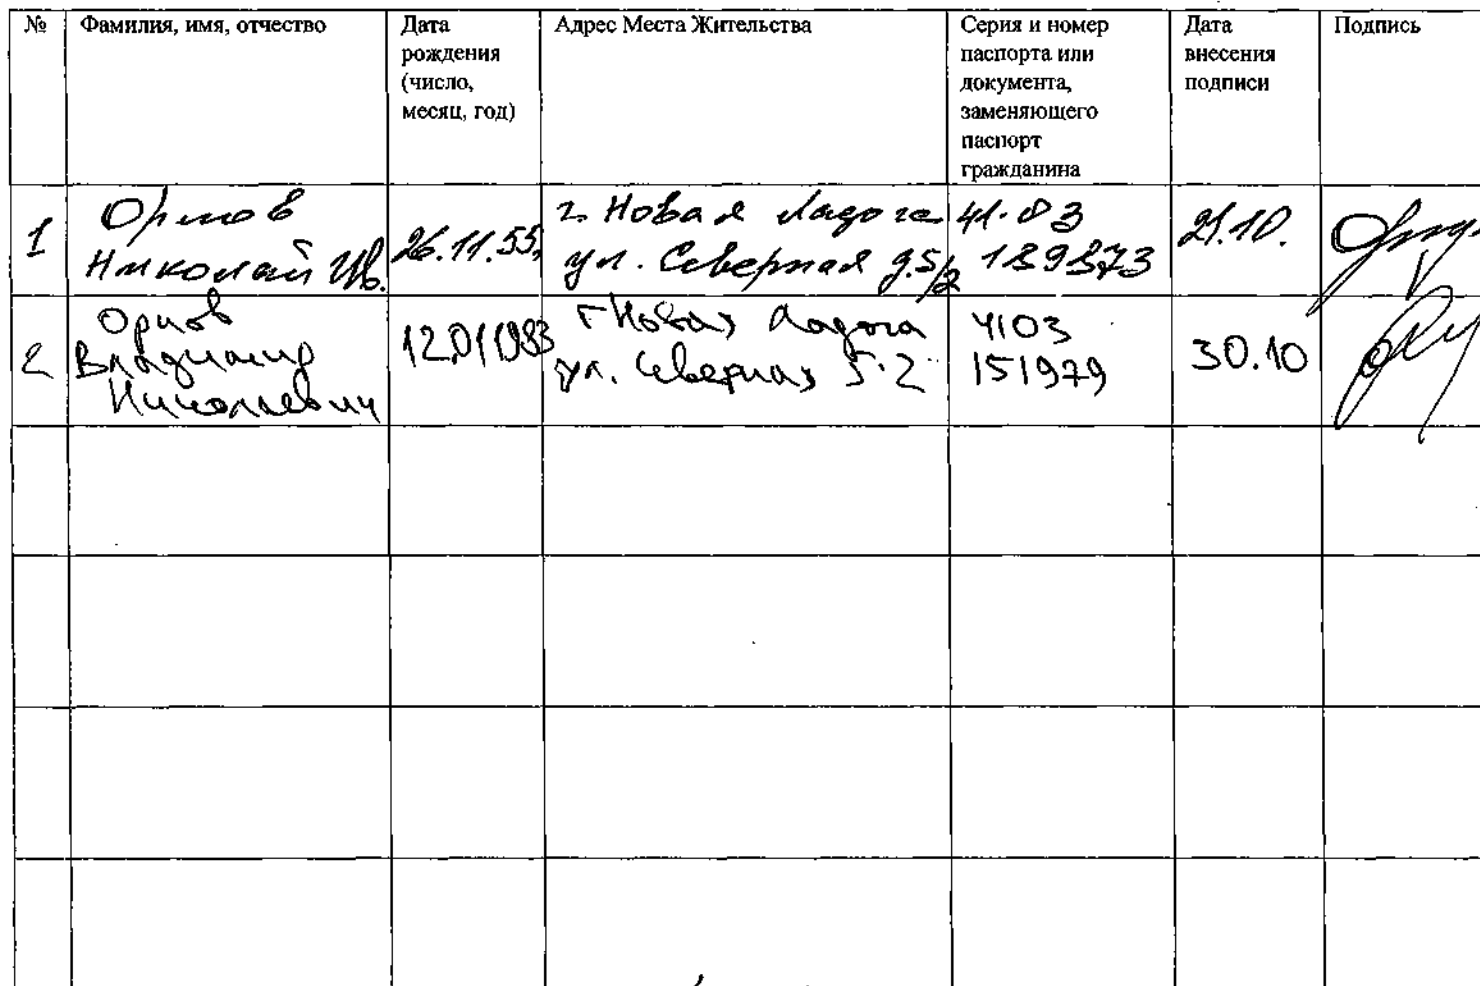 № Фамилия, имя, отчество Дата рождения (число, месяц, год) Адрес Места Жительства Серия и номер паспорта или документа, заменяющего паспорт гражданина Дата внесения подписи Подпись
1 Николай Ив. 26.11.55, г. Новая Ладога ул. Северная д.5/2 41.03 139373 21.10.
2 Владимир Николаевич 12.01 1983 г Новая Ладога ул. Северная 5-2 4103 151979 30.10